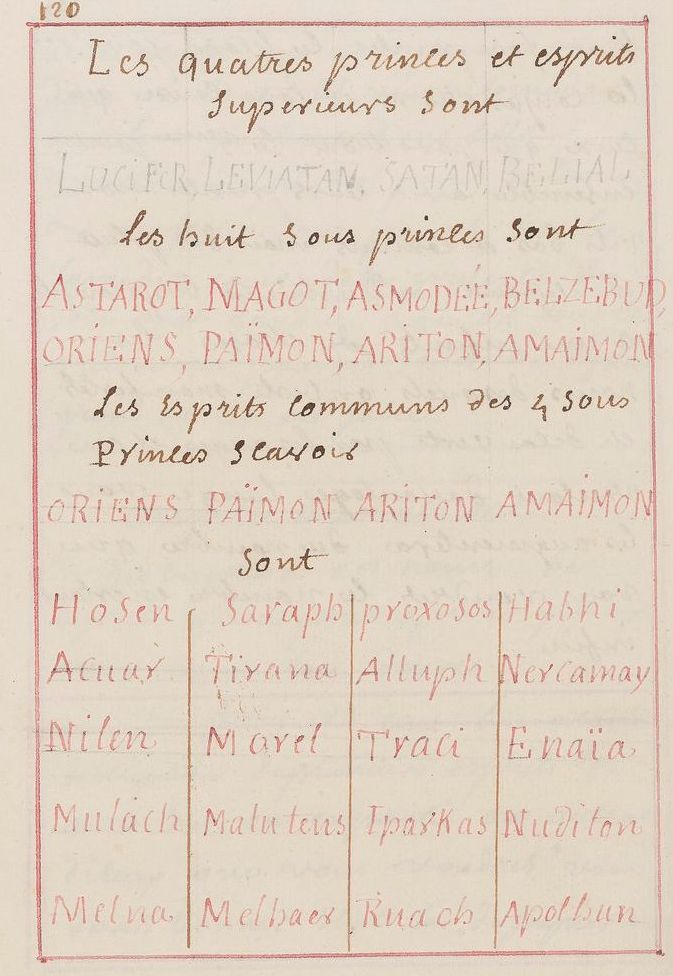 120
Les quatres princes et esprits
superieurs sont
LUCIFER, LEVIATAN, SATAN, BELIAL,
Les huit sous princes sont
ASTAROT, MAGOT, ASMODÉE, BELZEBUD,
ORIENS, PAÏMON, ARITON, AMAIMON
Les Esprits communs des 4 sous
Princes scavoir
ORIENS PAÏMON ARITON AMAIMON
sont
Hosen Saraph proxosos Habhi
Acuar Tirana Alluph Nercamay
Nilen Morel Traci Enaïa
Mulach Malutens Iparkas Nuditon
Melna Melhaer Ruach Apolhun